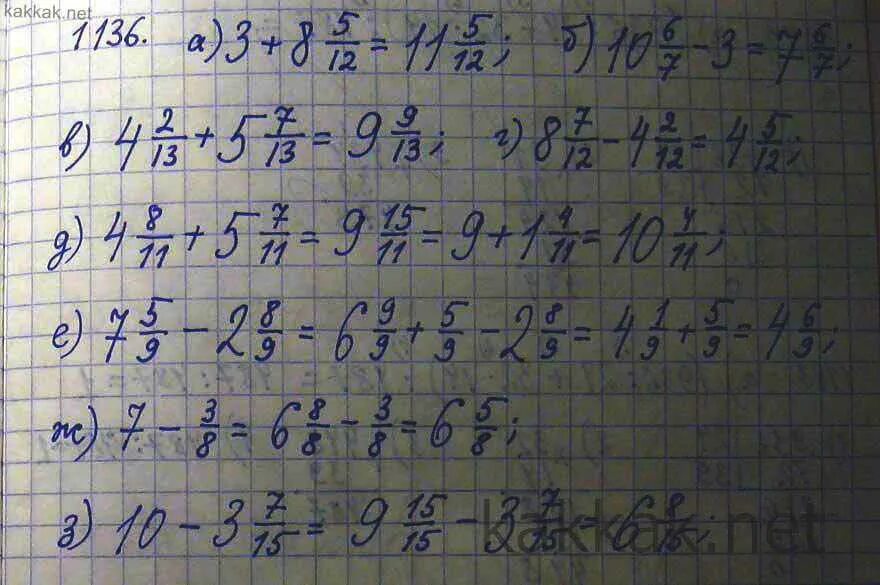 kakkak.net
1136. а) 3 + 8 5/12 = 11 5/12; б) 10 6/7 - 3 = 7 6/7;
в) 4 2/13 + 5 7/13 = 9 9/13; г) 8 7/12 - 4 2/12 = 4 5/12;
д) 4 8/11 + 5 7/11 = 9 15/11 = 9 + 1 4/11 = 10 4/11;
е) 7 5/9 - 2 8/9 = 6 9/9 + 5/9 - 2 8/9 = 4 1/9 + 5/9 = 4 6/9;
ж) 7 - 3/8 = 6 8/8 - 3/8 = 6 5/8;
з) 10 - 3 7/15 = 9 15/15 - 3 7/15 = 6 8/15;
kakkak.net